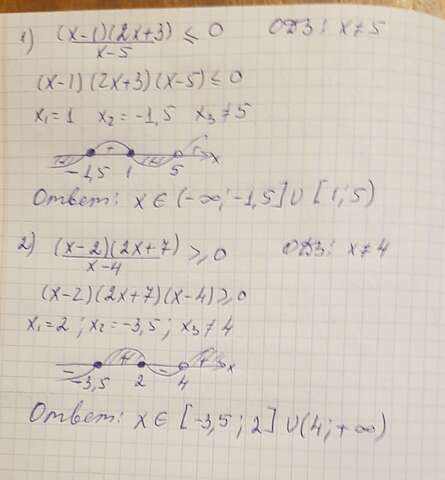 1) (x-1)(2x+3)/(x-5) ≤ 0 ОДЗ: x≠5
(x-1)(2x+3)(x-5)≤0
x₁=1 x₂=-1,5 x₃≠5
- + - + x
-1,5 1 5
Ответ: x ∈ (-∞;-1,5]∪[1;5)
2) (x-2)(2x+7)/(x-4) ≥ 0 ОДЗ: x≠4
(x-2)(2x+7)(x-4)≥0
x₁=2; x₂=-3,5; x₃≠4
- + - + x
-3,5 2 4
Ответ: x ∈ [-3,5;2]∪(4;+∞)